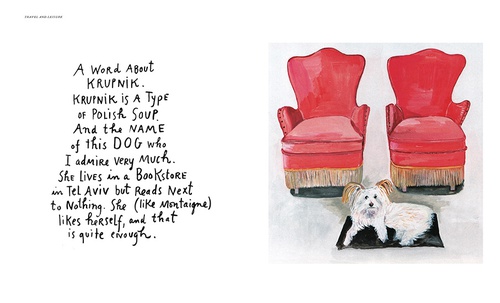 TRAVEL AND LEISURE
A WORD ABOUT
KRUPNIK.
KRUPNIK is A Type
of Polish Soup.
And the NAME
of this DOG who
I admire very Much.
She LIVES in a BOOKSTORE
in Tel Aviv but Reads Next
to Nothing. She (like Montaigne)
likes herself, and that
is quite enough.